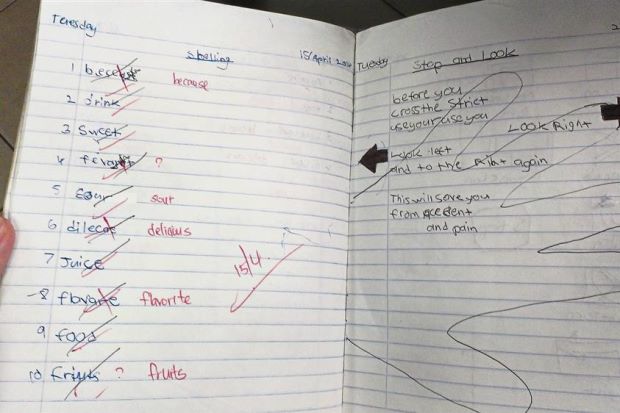 Tuesday
spelling 15/April 20
1 because
2 drink
3 Sweet
4 ?
5 sour
6 delicius
7 Juice
8 flavorite
9 food
10 ? fruits
15/4
Tuesday
Stop and Look
before you
cross the strict
use your use you
LOOK Right
Look left
and to the Ribt again
This will save you
from
and pain